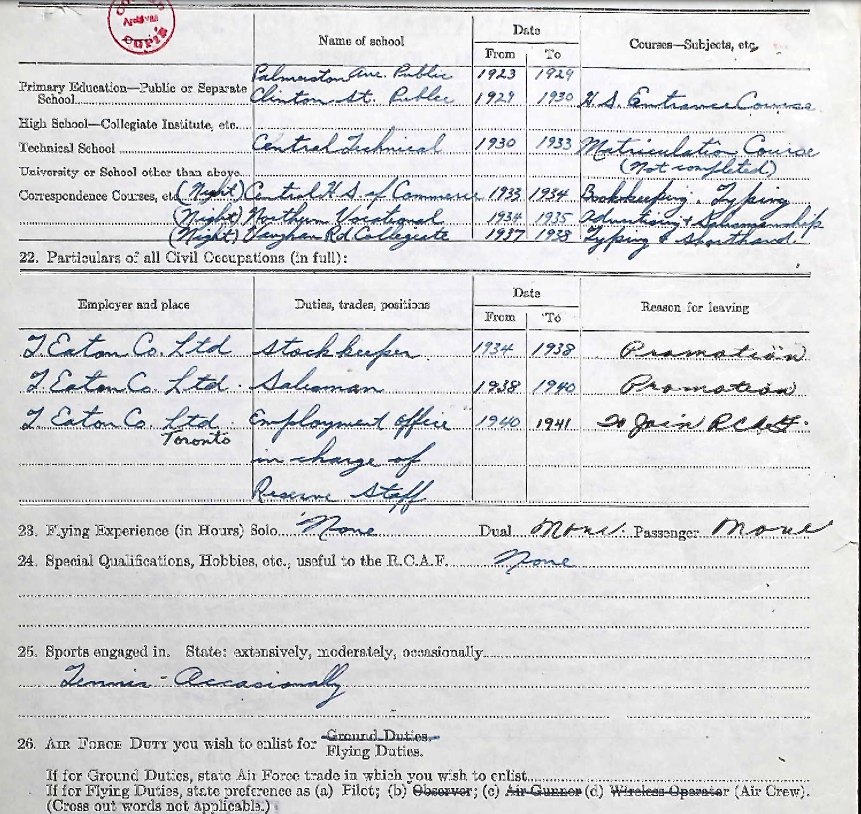 Archives
COPIE
Name of school
Date
From To
Courses—Subjects, etc.
Palmerston Ave. Public 1923 1929
Primary Education—Public or Separate
School Clinton St. Public 1929 1930 H.S. Entrance Course
High School—Collegiate Institute, etc.
Technical School Central Technical 1930 1933 Matriculation Course
University or School other than above (Not completed)
Correspondence Courses, etc. (Night) Central H.S. of Commerce 1933 1934 Bookkeeping. Typing
(Night) Northern Vocational 1934 1935 Advertising & Salesmanship
(Night) Vaughan Rd. Collegiate 1937 1938 Typing & Shorthand.
22. Particulars of all Civil Occupations (in full):
Employer and place Duties, trades, positions Date Reason for leaving
From To
T. Eaton Co. Ltd Stockkeeper 1934 1938 Promotion
T. Eaton Co. Ltd. Salesman 1938 1940 Promotion
T. Eaton Co. Ltd. Employment office 1940 1941 To Join R.C.A.F.
Toronto
in charge of
Reserve Staff
23. Flying Experience (in Hours) Solo None Dual None. Passenger None
24. Special Qualifications, Hobbies, etc., useful to the R.C.A.F. None
25. Sports engaged in. State: extensively, moderately, occasionally
Tennis - Occasionally
26. AIR FORCE DUTY you wish to enlist for Ground Duties.
Flying Duties.
If for Ground Duties, state Air Force trade in which you wish to enlist
If for Flying Duties, state preference as (a) Pilot; (b) Observer; (c) Air Gunner (d) Wireless Operator (Air Crew).
(Cross out words not applicable.)